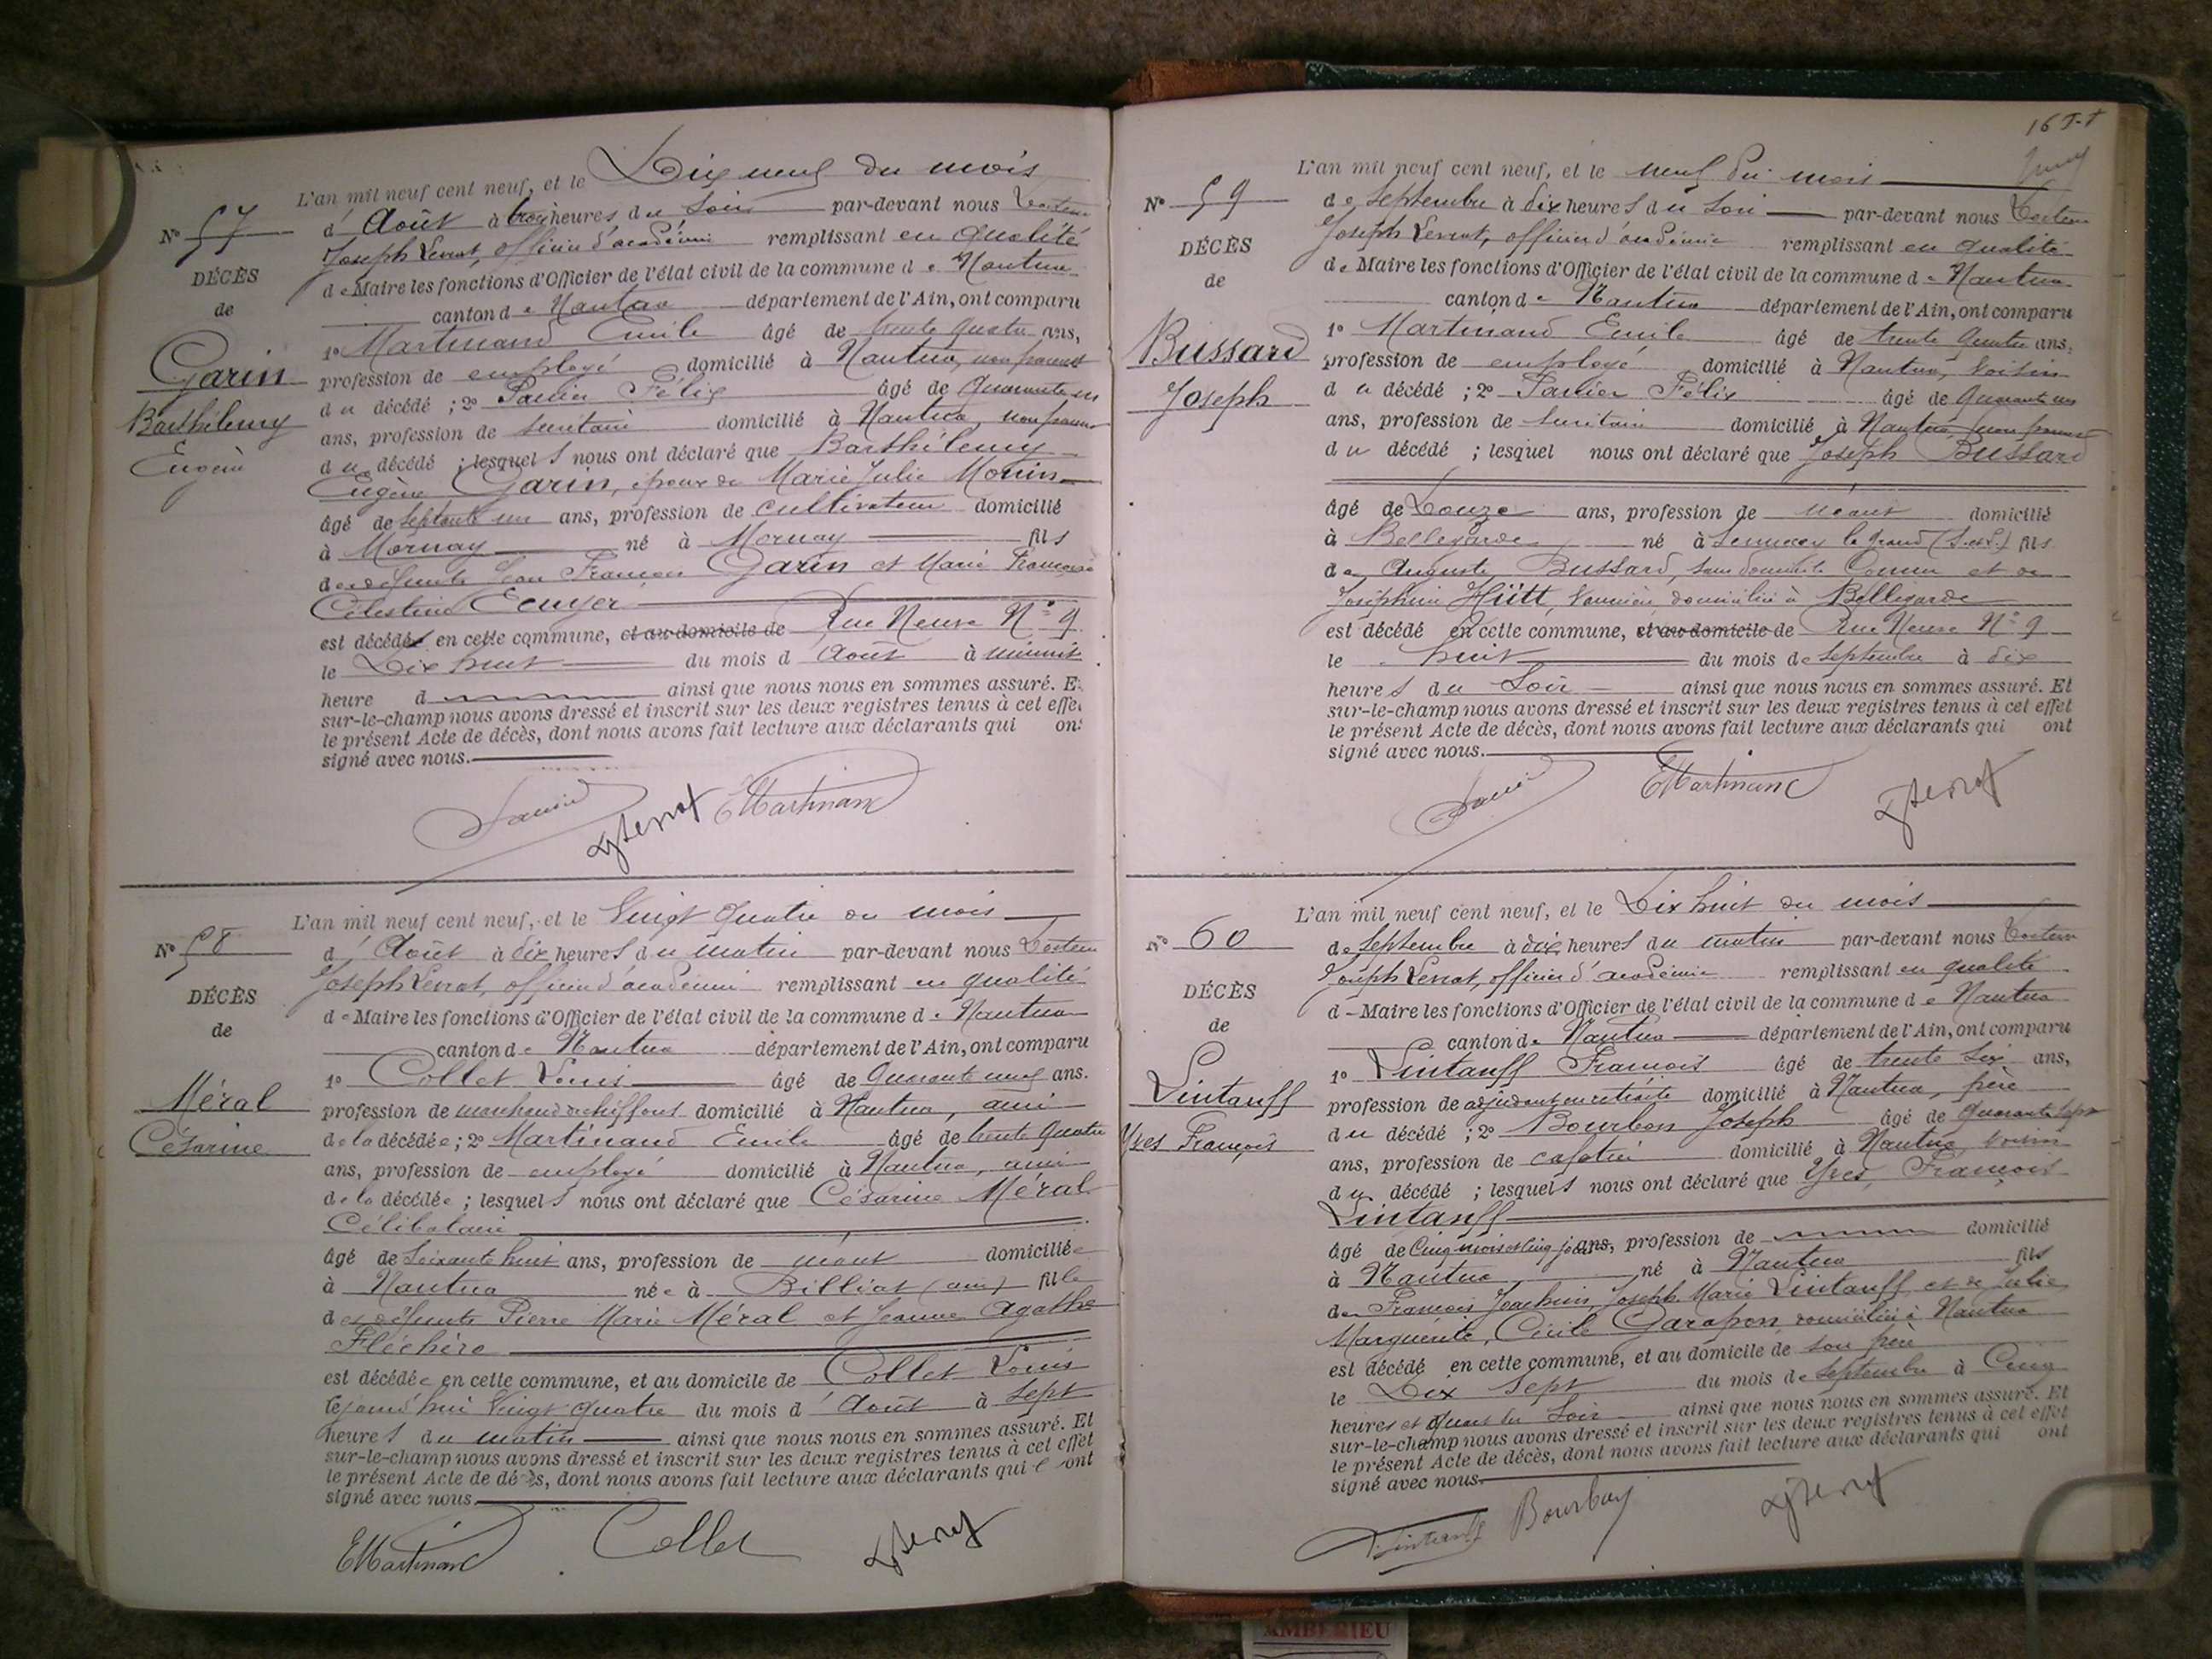 L'an mil neuf cent neuf, et le Dix neuf du mois
N° 57
d'Août à trois heures du Soir par-devant nous Docteur
Joseph Levrat, officier d'académie remplissant en qualité
DÉCÈS
de Maire les fonctions d'Officier de l'état civil de la commune de Nantua
de
canton de Nantua département de l'Ain, ont comparu
1° Martinand Emile âgé de trente quatre ans,
Garin
profession de employé domicilié à Nantua, non parent
Barthélemy
du décédé ; 2° Paulin Félix âgé de Quarante un
Eugène
ans, profession de secrétaire domicilié à Nantua, non parent
du décédé ; lesquels nous ont déclaré que Barthélemy
Eugène Garin, époux de Marie Julie Monin
âgé de septante un ans, profession de cultivateur domicilié
à Mornay né à Mornay fils
des défunts Jean François Garin et Marie Françoise
Célestine Ecuyer
est décédé en cette commune, et au domicile de Rue Neuve N° 9
le Dix huit du mois d'Août à minuit
heure d ainsi que nous nous en sommes assuré. Et
sur-le-champ nous avons dressé et inscrit sur les deux registres tenus à cet effet
le présent Acte de décès, dont nous avons fait lecture aux déclarants qui ont
signé avec nous.
EMartinand
L'an mil neuf cent neuf, et le Vingt Quatre du mois
N° 58
d'Août à dix heures du matin par-devant nous Docteur
Joseph Levrat, officier d'académie remplissant en qualité
DÉCÈS
de Maire les fonctions d'Officier de l'état civil de la commune de Nantua
de
canton de Nantua département de l'Ain, ont comparu
1° Collet Louis âgé de Quarante neuf ans.
Méral
profession de marchand de chiffons domicilié à Nantua, ami
Césarine
de la décédée ; 2° Martinand Emile âgé de trente quatre
ans, profession de employé domicilié à Nantua, ami
de la décédée ; lesquels nous ont déclaré que Césarine Méral
Célibataire
âgé de Soixante huit ans, profession de néant domiciliée
à Nantua née à Billiat (ain) fille
des défunts Pierre Marie Méral et Jeanne Agathe
Fléchère
est décédée en cette commune, et au domicile de Collet Louis
le jourd'hui Vingt quatre du mois d'Août à sept
heures du matin ainsi que nous nous en sommes assuré. Et
sur-le-champ nous avons dressé et inscrit sur les deux registres tenus à cet effet
le présent Acte de décès, dont nous avons fait lecture aux déclarants qui ont
signé avec nous.
EMartinand Collet
L'an mil neuf cent neuf, et le neuf du mois
N° 59
de Septembre à dix heures du Soir par-devant nous Docteur
Joseph Levrat, officier d'académie remplissant en qualité
DÉCÈS
de Maire les fonctions d'Officier de l'état civil de la commune de Nantua
de
canton de Nantua département de l'Ain, ont comparu
1° Martinand Emile âgé de trente quatre ans,
Bussard
profession de employé domicilié à Nantua, voisin
Joseph
du décédé ; 2° Paulin Félix âgé de Quarante un
ans, profession de secrétaire domicilié à Nantua, non parent
du décédé ; lesquel nous ont déclaré que Joseph Bussard
âgé de Douze ans, profession de néant domicilié
à Bellegarde né à Sennecey le grand (S.et L.) fils
de Auguste Bussard, sans domicile connu et de
Joséphine Hütt, domiciliée à Bellegarde
est décédé en cette commune, et au domicile de Rue Neuve N° 9
le huit du mois de Septembre à dix
heures du Soir ainsi que nous nous en sommes assuré. Et
sur-le-champ nous avons dressé et inscrit sur les deux registres tenus à cet effet
le présent Acte de décès, dont nous avons fait lecture aux déclarants qui ont
signé avec nous.
EMartinand
L'an mil neuf cent neuf, et le Dix huit du mois
N° 60
de Septembre à dix heures du matin par-devant nous Docteur
Joseph Levrat, officier d'académie remplissant en qualité
DÉCÈS
d Maire les fonctions d'Officier de l'état civil de la commune de Nantua
de
canton de Nantua département de l'Ain, ont comparu
1° Lintanff François âgé de trente six ans,
Lintanff
profession de adjudant en retraite domicilié à Nantua, père
Yves François
du décédé ; 2° Bourbon Joseph âgé de Quarante sept
ans, profession de cafetier domicilié à Nantua, voisin
du décédé ; lesquels nous ont déclaré que Yves, François
Lintanff
âgé de Cinq mois et cinq jours ans, profession de domicilié
à Nantua né à Nantua fils
de François Joachim, Joseph Marie Lintanff et de Julie
Marguerite, Cécile Garapon domiciliés à Nantua
est décédé en cette commune, et au domicile de son père
le Dix Sept du mois de Septembre à Cinq
heures et quart du Soir ainsi que nous nous en sommes assuré. Et
sur-le-champ nous avons dressé et inscrit sur les deux registres tenus à cet effet
le présent Acte de décès, dont nous avons fait lecture aux déclarants qui ont
signé avec nous.
Lintanff Bourbon
AMBERIEU